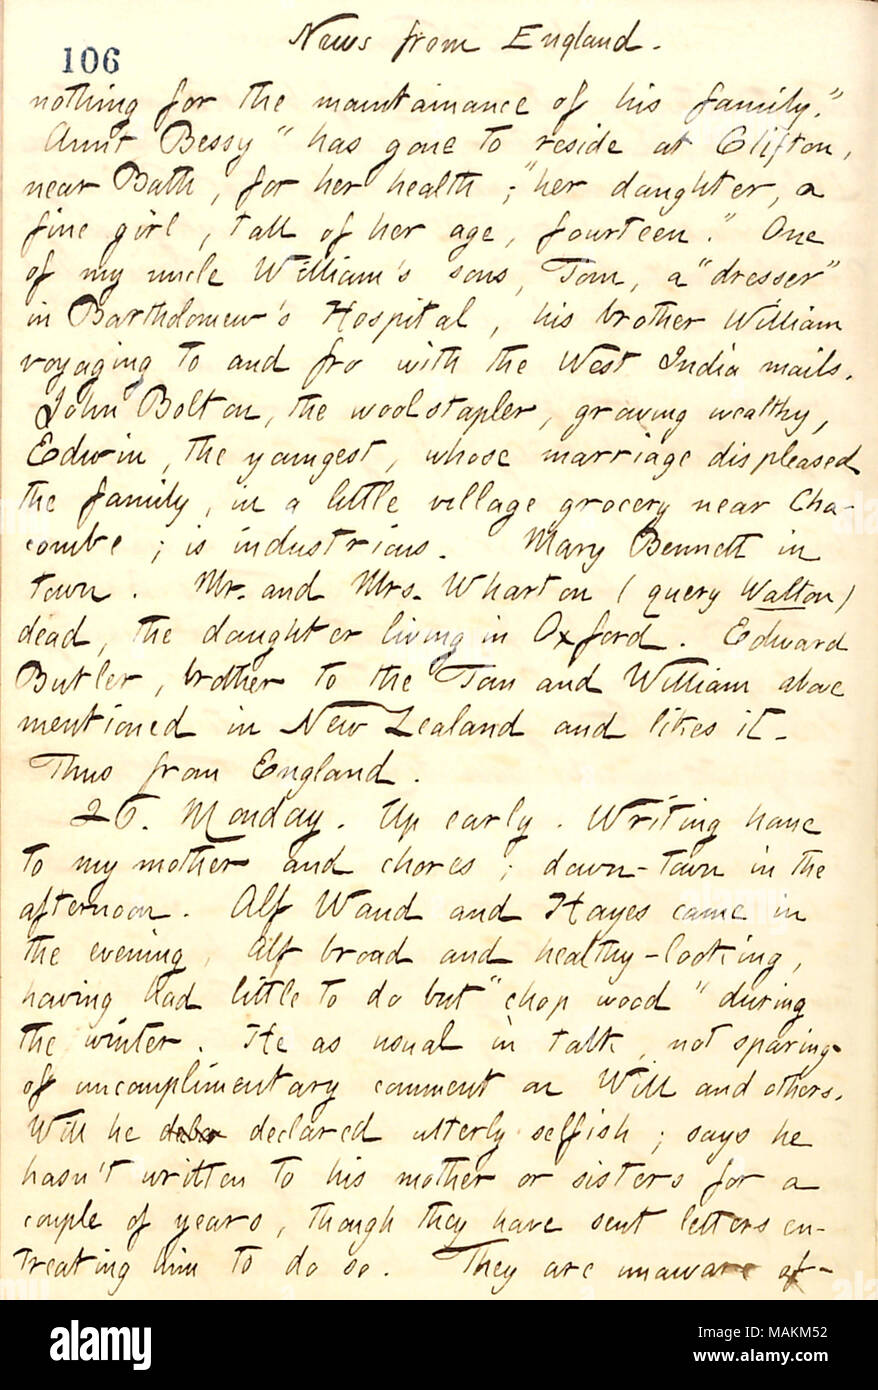 News from England.
106
nothing for the maintainance of his family."
Aunt Bessy "has gone to reside at Clifton,
near Bath, for her health;" "her daughter, a
fine girl, tall of her age, fourteen." One
of my uncle William's sons, Tom, a "dresser"
in Bartholomew's Hospital, his brother William
voyaging to and fro with the West India mails.
John Bolton, the woolstapler, growing wealthy,
Edwin, the youngest, whose marriage displeased
the family, in a little village grocery near Cha-
combe; is industrious. Mary Bennett in
town. Mr. and Mrs. Wharton (query Walton)
dead, the daughter living in Oxford. Edward
Butler, brother to the Tom and William above
mentioned in New Zealand and likes it.
Thus from England.
26. Monday. Up early. Writing home
to my mother and chores; down-town in the
afternoon. Alf Waud and Hayes came in
the evening, Alf broad and healthy-looking,
having had little to do but "chop wood" during
the winter. He as usual in talk, not sparing
of uncomplimentary comment on Will and others.
Will he declared utterly selfish; says he
hasn't written to his mother or sisters for a
couple of years, though they have sent letters en-
treating him to do so. They are unaware of-
alamy
Image ID: MAKM52
www.alamy.com